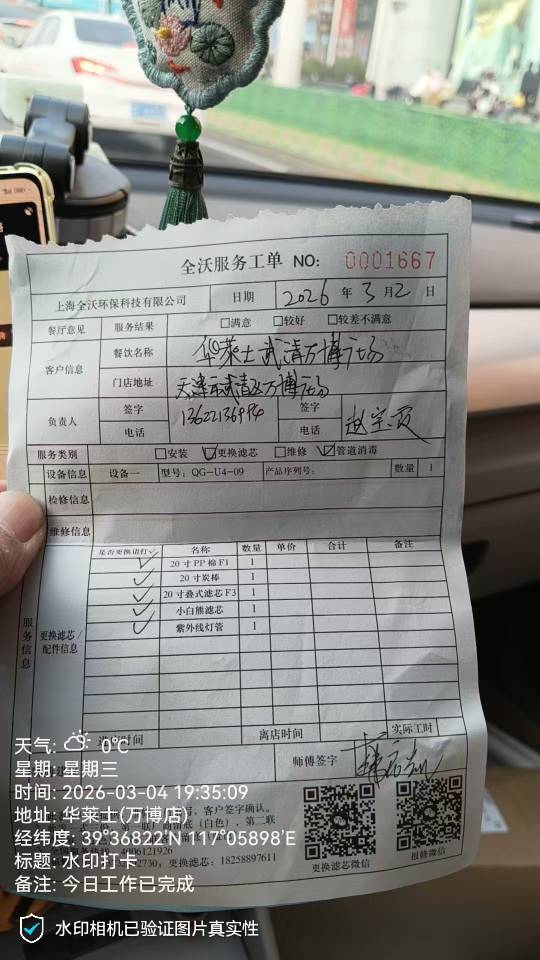 全沃服务工单 NO: 0001667
上海全沃环保科技有限公司 日期 2026 年 3 月 2 日
餐厅意见 服务结果 □满意 □较好 □较差不满意
客户信息 餐饮名称 华莱士武清万博广场
门店地址 天津市武清区万博广场
负责人 签字 签字
电话 电话
服务类别 □安装 ☑更换滤芯 □维修 ☑管道消毒
设备信息 设备一 型号: QG-U4-09 产品序列号: 数量 1
检修信息
维修信息
服务信息 更换滤芯/配件信息
是否更换请打✓ 名称 数量 单价 合计 备注
✓ 20寸PP棉F1 1
✓ 20寸炭棒 1
✓ 20寸叠式滤芯F3 1
✓ 小白熊滤芯 1
✓ 紫外线灯管 1
时间 离店时间 实际工时
师傅签字
客户签字确认。
(白色)、第二联
4006121926
2730, 更换滤芯: 18258897611
更换滤芯微信 报修微信
天气: 0℃
星期: 星期三
时间: 2026-03-04 19:35:09
地址: 华莱士(万博店)
经纬度: 39°36822'N 117°05898'E
标题: 水印打卡
备注: 今日工作已完成
水印相机已验证图片真实性